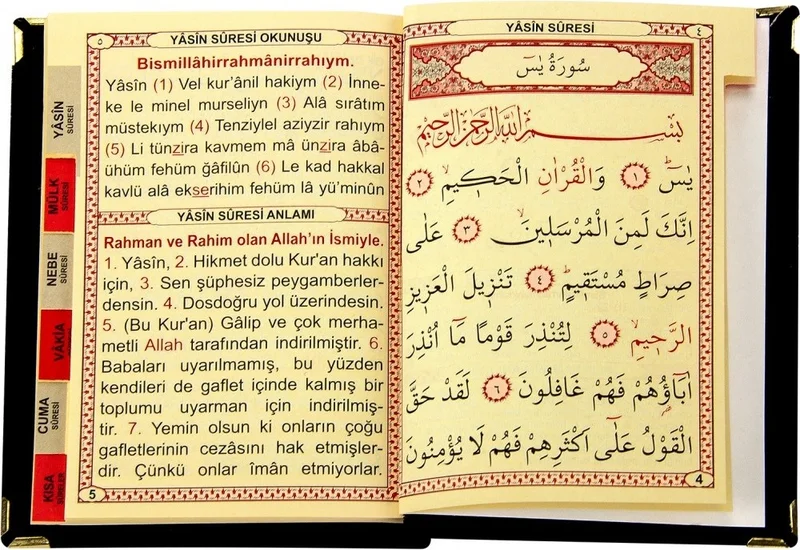 ٥
YÂSÎN SÛRESİ OKUNUŞU
Bismillâhirrahmânirrahıym.
Yâsîn (1) Vel kur’ânil hakiym (2) İnne-
ke le minel murseliyn (3) Alâ sırâtım
müstekıym (4) Tenziylel aziyzir rahıym
(5) Li tünzira kavmem mâ ünzira âbâ-
ühüm fehüm ğafilûn (6) Le kad hakkal
kavlü alâ ekserihim fehüm lâ yü’minûn
YÂSÎN SÛRESİ ANLAMI
Rahman ve Rahim olan Allah’ın İsmiyle.
1. Yâsîn, 2. Hikmet dolu Kur'an hakkı
için, 3. Sen şüphesiz peygamberler-
densin. 4. Dosdoğru yol üzerindesin.
5. (Bu Kur'an) Gâlip ve çok merha-
metli Allah tarafından indirilmiştir. 6.
Babaları uyarılmamış, bu yüzden
kendileri de gaflet içinde kalmış bir
toplumu uyarman için indirilmiş-
tir. 7. Yemin olsun ki onların çoğu
gafletlerinin cezâsını hak etmişler-
dir. Çünkü onlar îmân etmiyorlar.
5
YÂSÎN SÛRESİ
MÜLK SÛRESİ
NEBE SÛRESİ
VÂKIA
CUMA SÛRESİ
KISA SÛRELER
YÂSÎN SÛRESİ
٤
سُورَةُ يٰسٓ
بِسْمِ اللّٰهِ الرَّحْمٰنِ الرَّحِيمِ
يٰسٓ ﴿١﴾ وَالْقُرْاٰنِ الْحَكِيمِ ﴿٢﴾
اِنَّكَ لَمِنَ الْمُرْسَلِينَ ﴿٣﴾ عَلٰى
صِرَاطٍ مُسْتَقِيمٍ ﴿٤﴾ تَنْزِيلَ الْعَزِيزِ
الرَّحِيمِ ﴿٥﴾ لِتُنْذِرَ قَوْمًا مَٓا اُنْذِرَ
اٰبَٓاؤُهُمْ فَهُمْ غَافِلُونَ ﴿٦﴾ لَقَدْ حَقَّ
الْقَوْلُ عَلٰٓى اَكْثَرِهِمْ فَهُمْ لَا يُؤْمِنُونَ
4